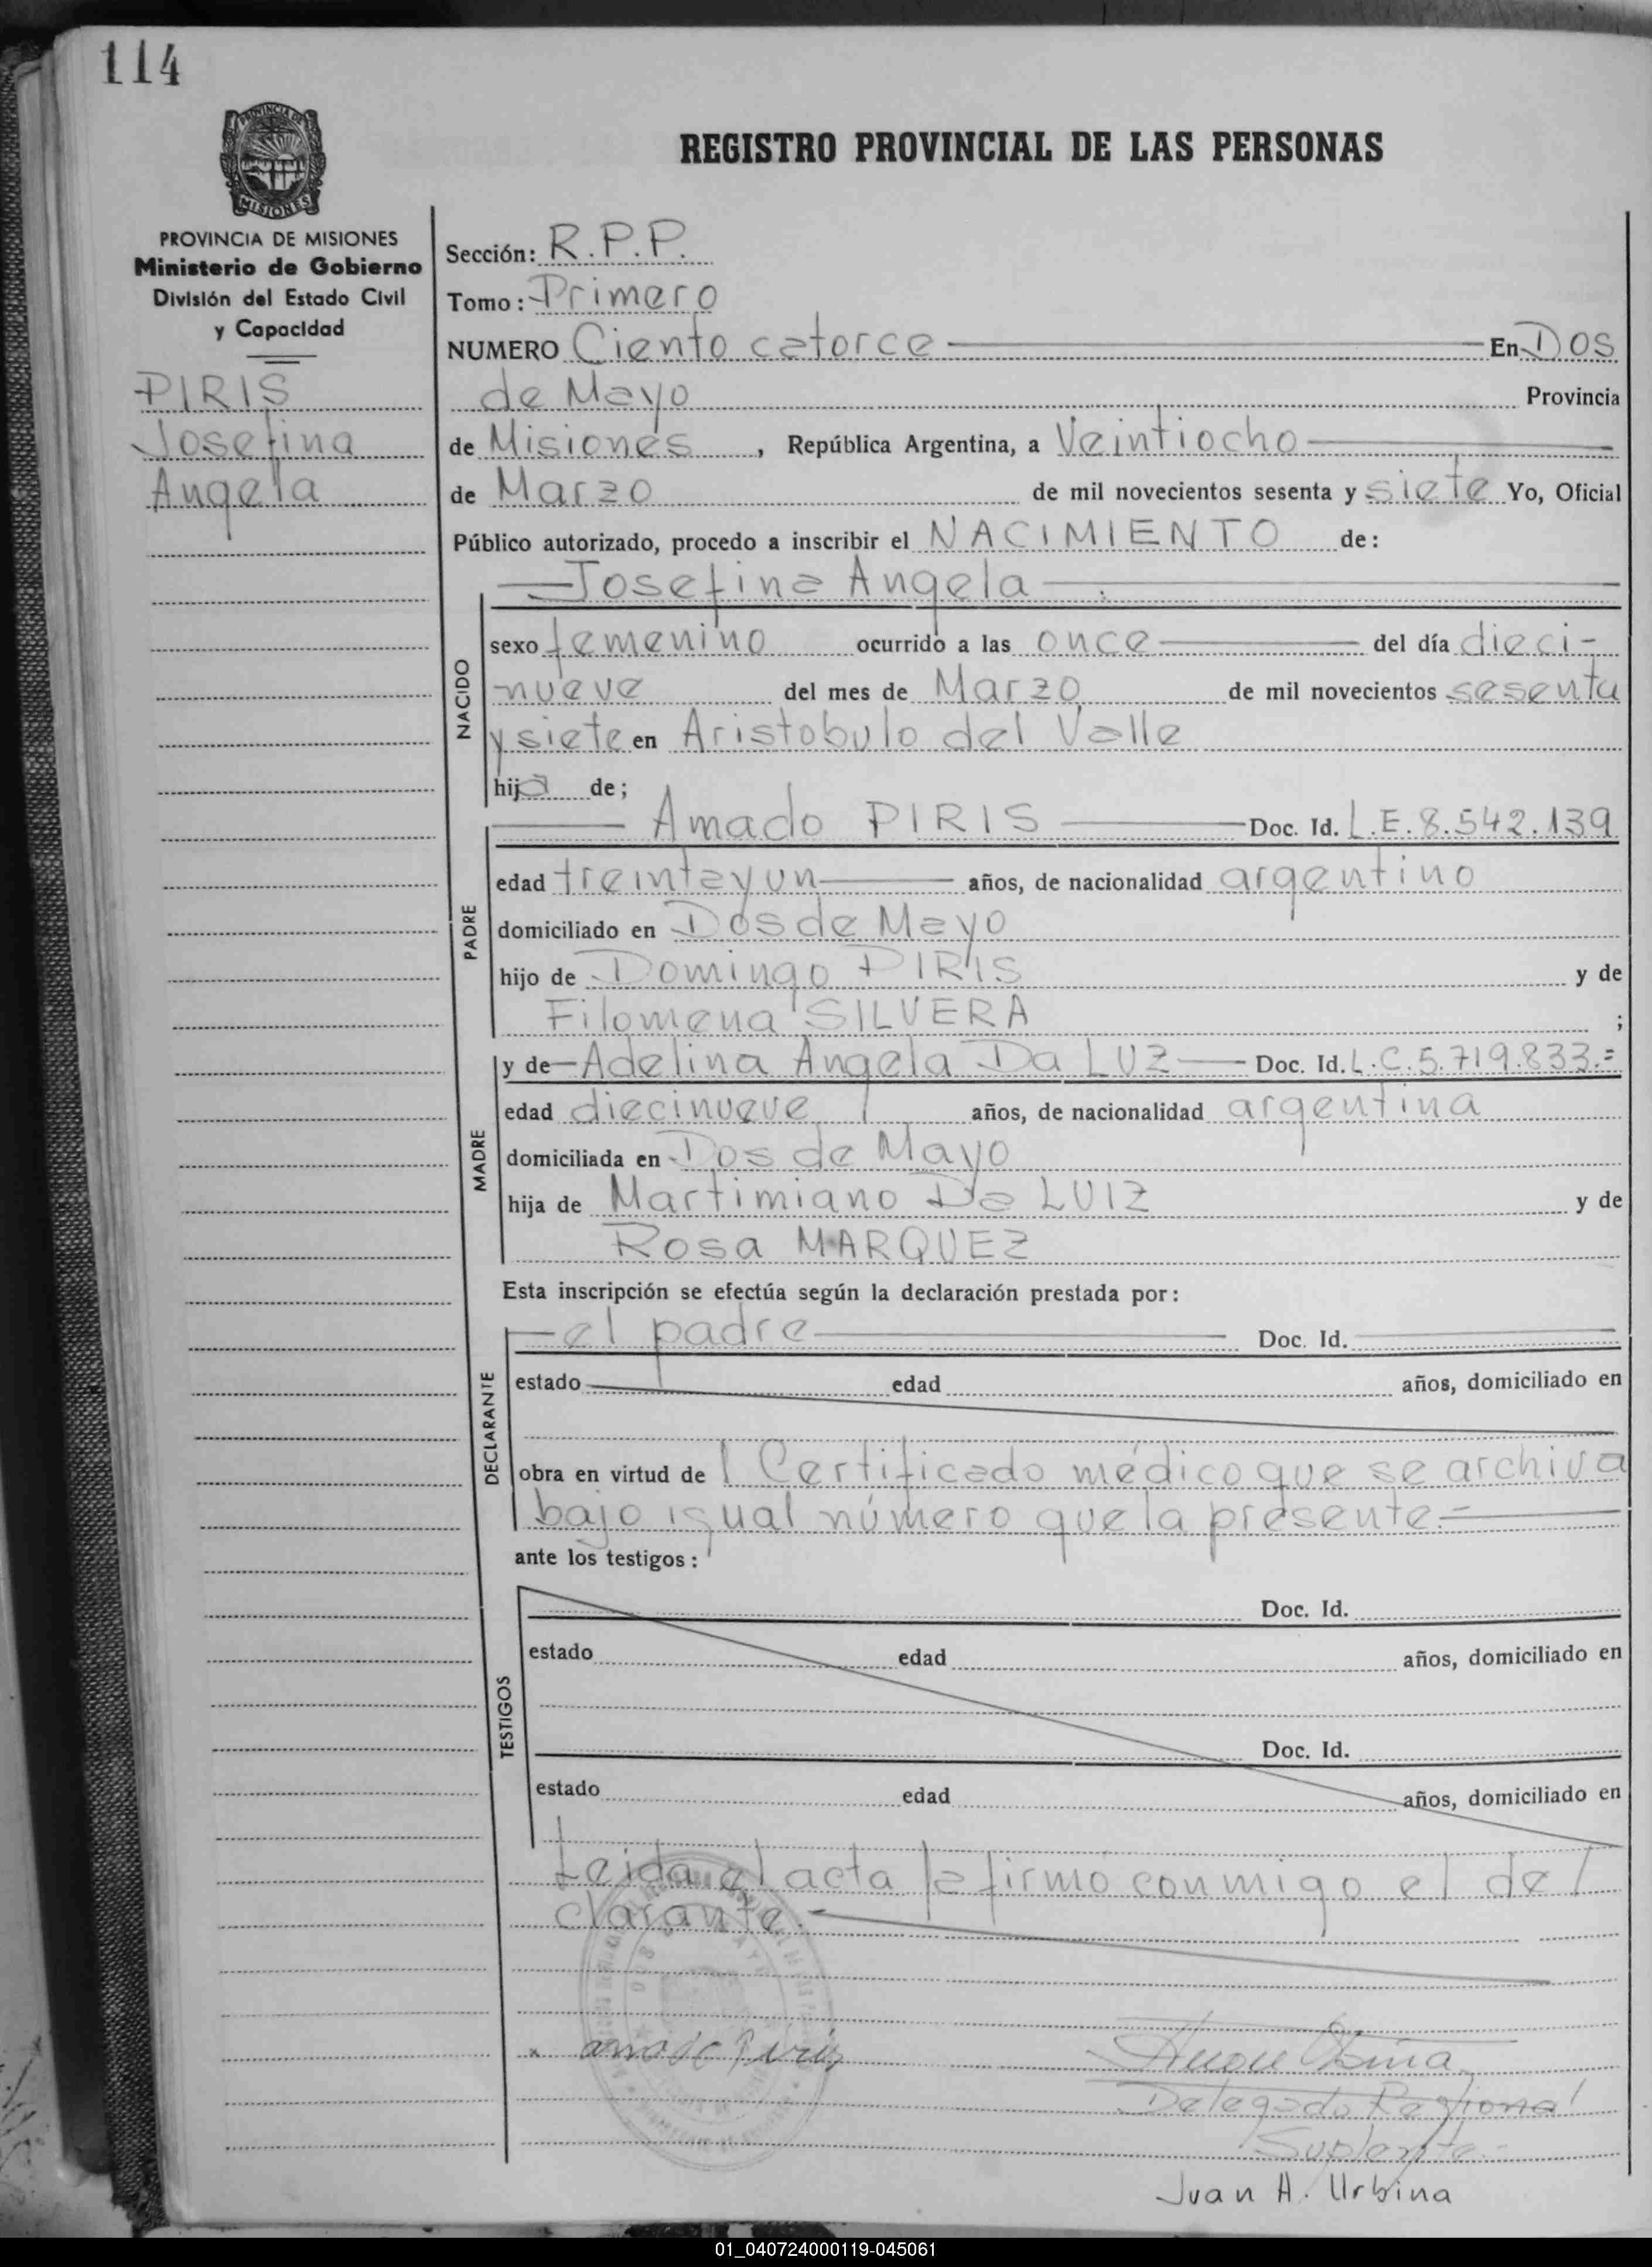 114
PROVINCIA DE
MISIONES
REGISTRO PROVINCIAL DE LAS PERSONAS
PROVINCIA DE MISIONES
Ministerio de Gobierno
División del Estado Civil
y Capacidad
PIRIS
Josefina
Angela
Sección: R.P.P.
Tomo: Primero
NUMERO Ciento catorce En Dos
de Mayo Provincia
de Misiones, República Argentina, a Veintiocho
de Marzo de mil novecientos sesenta y siete Yo, Oficial
Público autorizado, procedo a inscribir el NACIMIENTO de:
Josefina Angela
NACIDO
sexo femenino ocurrido a las once del día dieci-
nueve del mes de Marzo de mil novecientos sesenta
y siete en Aristobulo del Valle
hija de;
PADRE
Amado PIRIS Doc. Id. L.E. 8.542.139
edad treintayun años, de nacionalidad argentino
domiciliado en Dos de Mayo
hijo de Domingo PIRIS y de
Filomena SILVERA ;
MADRE
y de Adelina Angela Da LUZ Doc. Id. L.C. 5.719.833.=
edad diecinueve años, de nacionalidad argentina
domiciliada en Dos de Mayo
hija de Martimiano Da LUIZ y de
Rosa MARQUEZ
Esta inscripción se efectúa según la declaración prestada por:
DECLARANTE
el padre Doc. Id.
estado edad años, domiciliado en
obra en virtud de l Certificado médico que se archiva
bajo igual número que la presente.=
ante los testigos:
TESTIGOS
Doc. Id.
estado edad años, domiciliado en
Doc. Id.
estado edad años, domiciliado en
Leida el acta la firmó conmigo el de
clarante.
amado Piris
Delegado Regional
Suplente
Juan A. Urbina
01_040724000119-045061